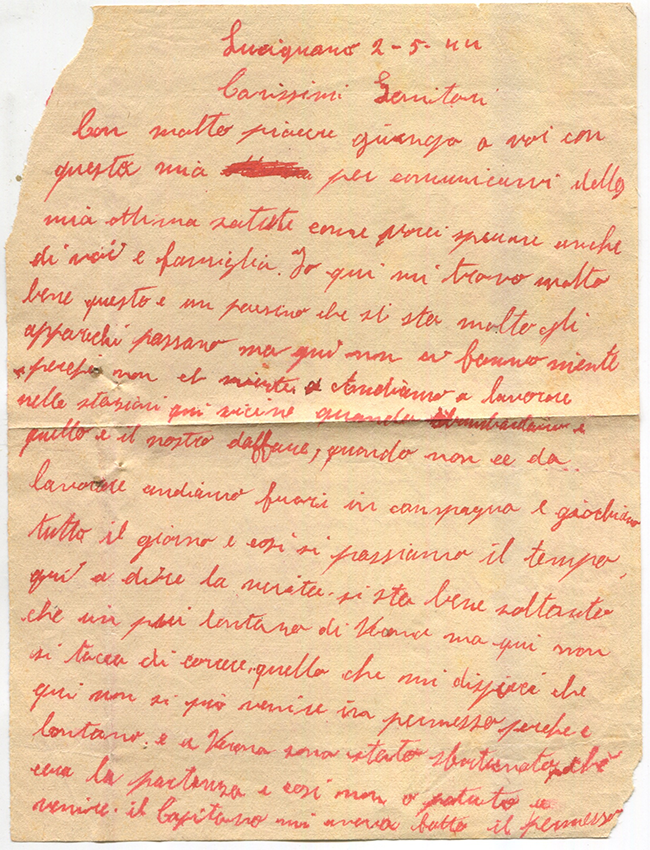 Lucignano 2-5-44
Carissimi Genitori
Con molto piacere giungo a voi con
questa mia per comunicarvi della
mia ottima salute come vorei sperare anche
di voi e famiglia. Io qui mi trovo molto
bene questo e un paesino che si sta molto gli
apparechi passano ma qui non ci fanno niente
perche non ce niente Andiamo a lavorare
nelle stazioni qui vicine quando bombardano e
quello e il nostro daffare, quando non ce da
lavorare andiamo fuori in campagna e giochiamo
tutto il giorno e cosi si passiamo il tempo,
qui a dire la verita si sta bene soltanto
che un piu lontano di Verona ma qui non
si tocca di correre, quello che mi dispiaci che
qui non si può venire in permesso perche e
lontano, e a Verona sono stato sfortunato, chè
cera la partenza e cosi non o potuto
venire. il Capitano mi aveva fatto il permesso